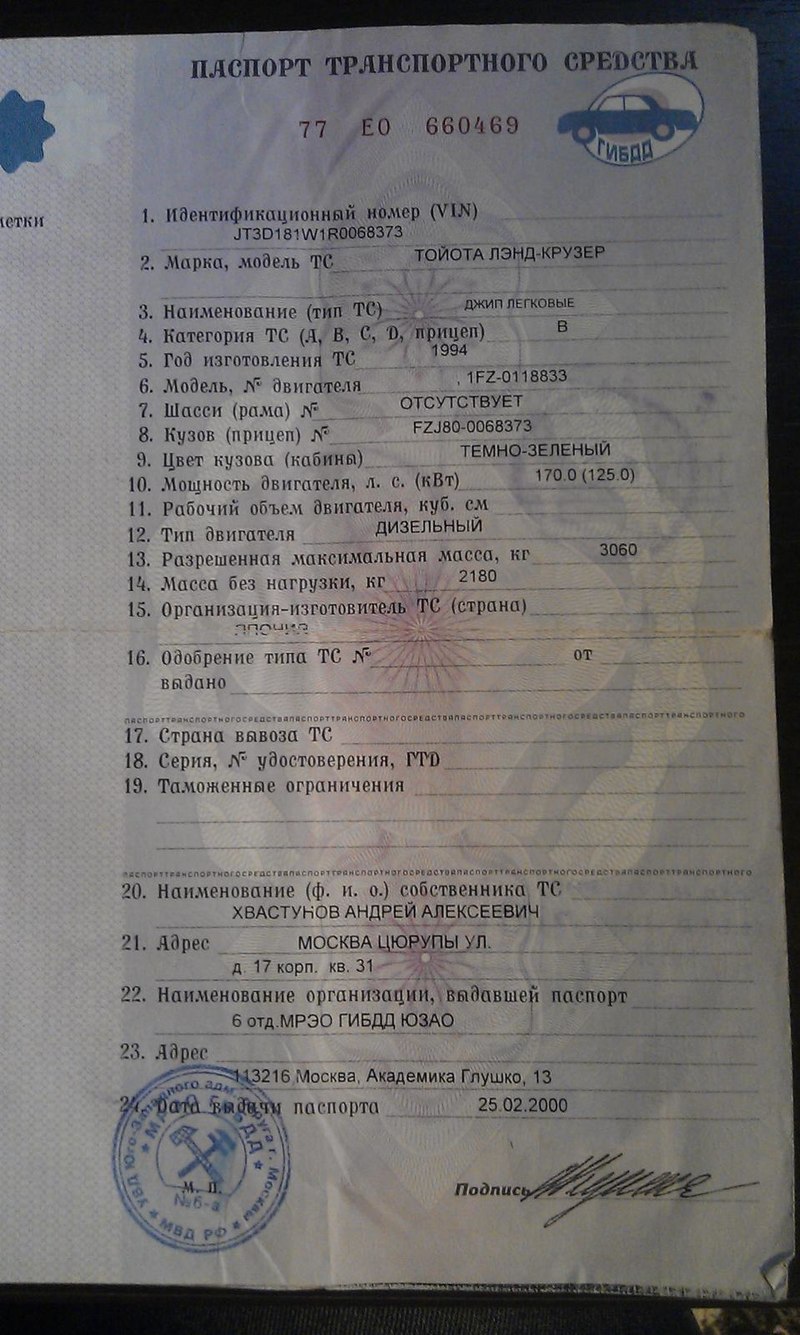 ПАСПОРТ ТРАНСПОРТНОГО СРЕДСТВА
77 ЕО 660469
ГИБДД
1. Идентификационный номер (VIN)
JT3D181W1R0068373
2. Марка, модель ТС ТОЙОТА ЛЭНД-КРУЗЕР
3. Наименование (тип ТС) ДЖИП ЛЕГКОВЫЕ
4. Категория ТС (A, B, C, D, прицеп) B
5. Год изготовления ТС 1994
6. Модель, № двигателя , 1FZ-0118833
7. Шасси (рама) № ОТСУТСТВУЕТ
8. Кузов (прицеп) № FZJ80-0068373
9. Цвет кузова (кабины) ТЕМНО-ЗЕЛЕНЫЙ
10. Мощность двигателя, л. с. (кВт) 170.0 (125.0)
11. Рабочий объем двигателя, куб. см
12. Тип двигателя ДИЗЕЛЬНЫЙ
13. Разрешенная максимальная масса, кг 3060
14. Масса без нагрузки, кг 2180
15. Организация-изготовитель ТС (страна)
16. Одобрение типа ТС № от
выдано
17. Страна вывоза ТС
18. Серия, № удостоверения, ГТD
19. Таможенные ограничения
20. Наименование (ф. и. о.) собственника ТС
ХВАСТУНОВ АНДРЕЙ АЛЕКСЕЕВИЧ
21. Адрес МОСКВА ЦЮРУПЫ УЛ.
д. 17 корп. кв. 31
22. Наименование организации, выдавшей паспорт
6 отд.МРЭО ГИБДД ЮЗАО
23. Адрес
113216 Москва, Академика Глушко, 13
24. Дата выдачи паспорта 25.02.2000
М. П.
Подпись
МВД РФ